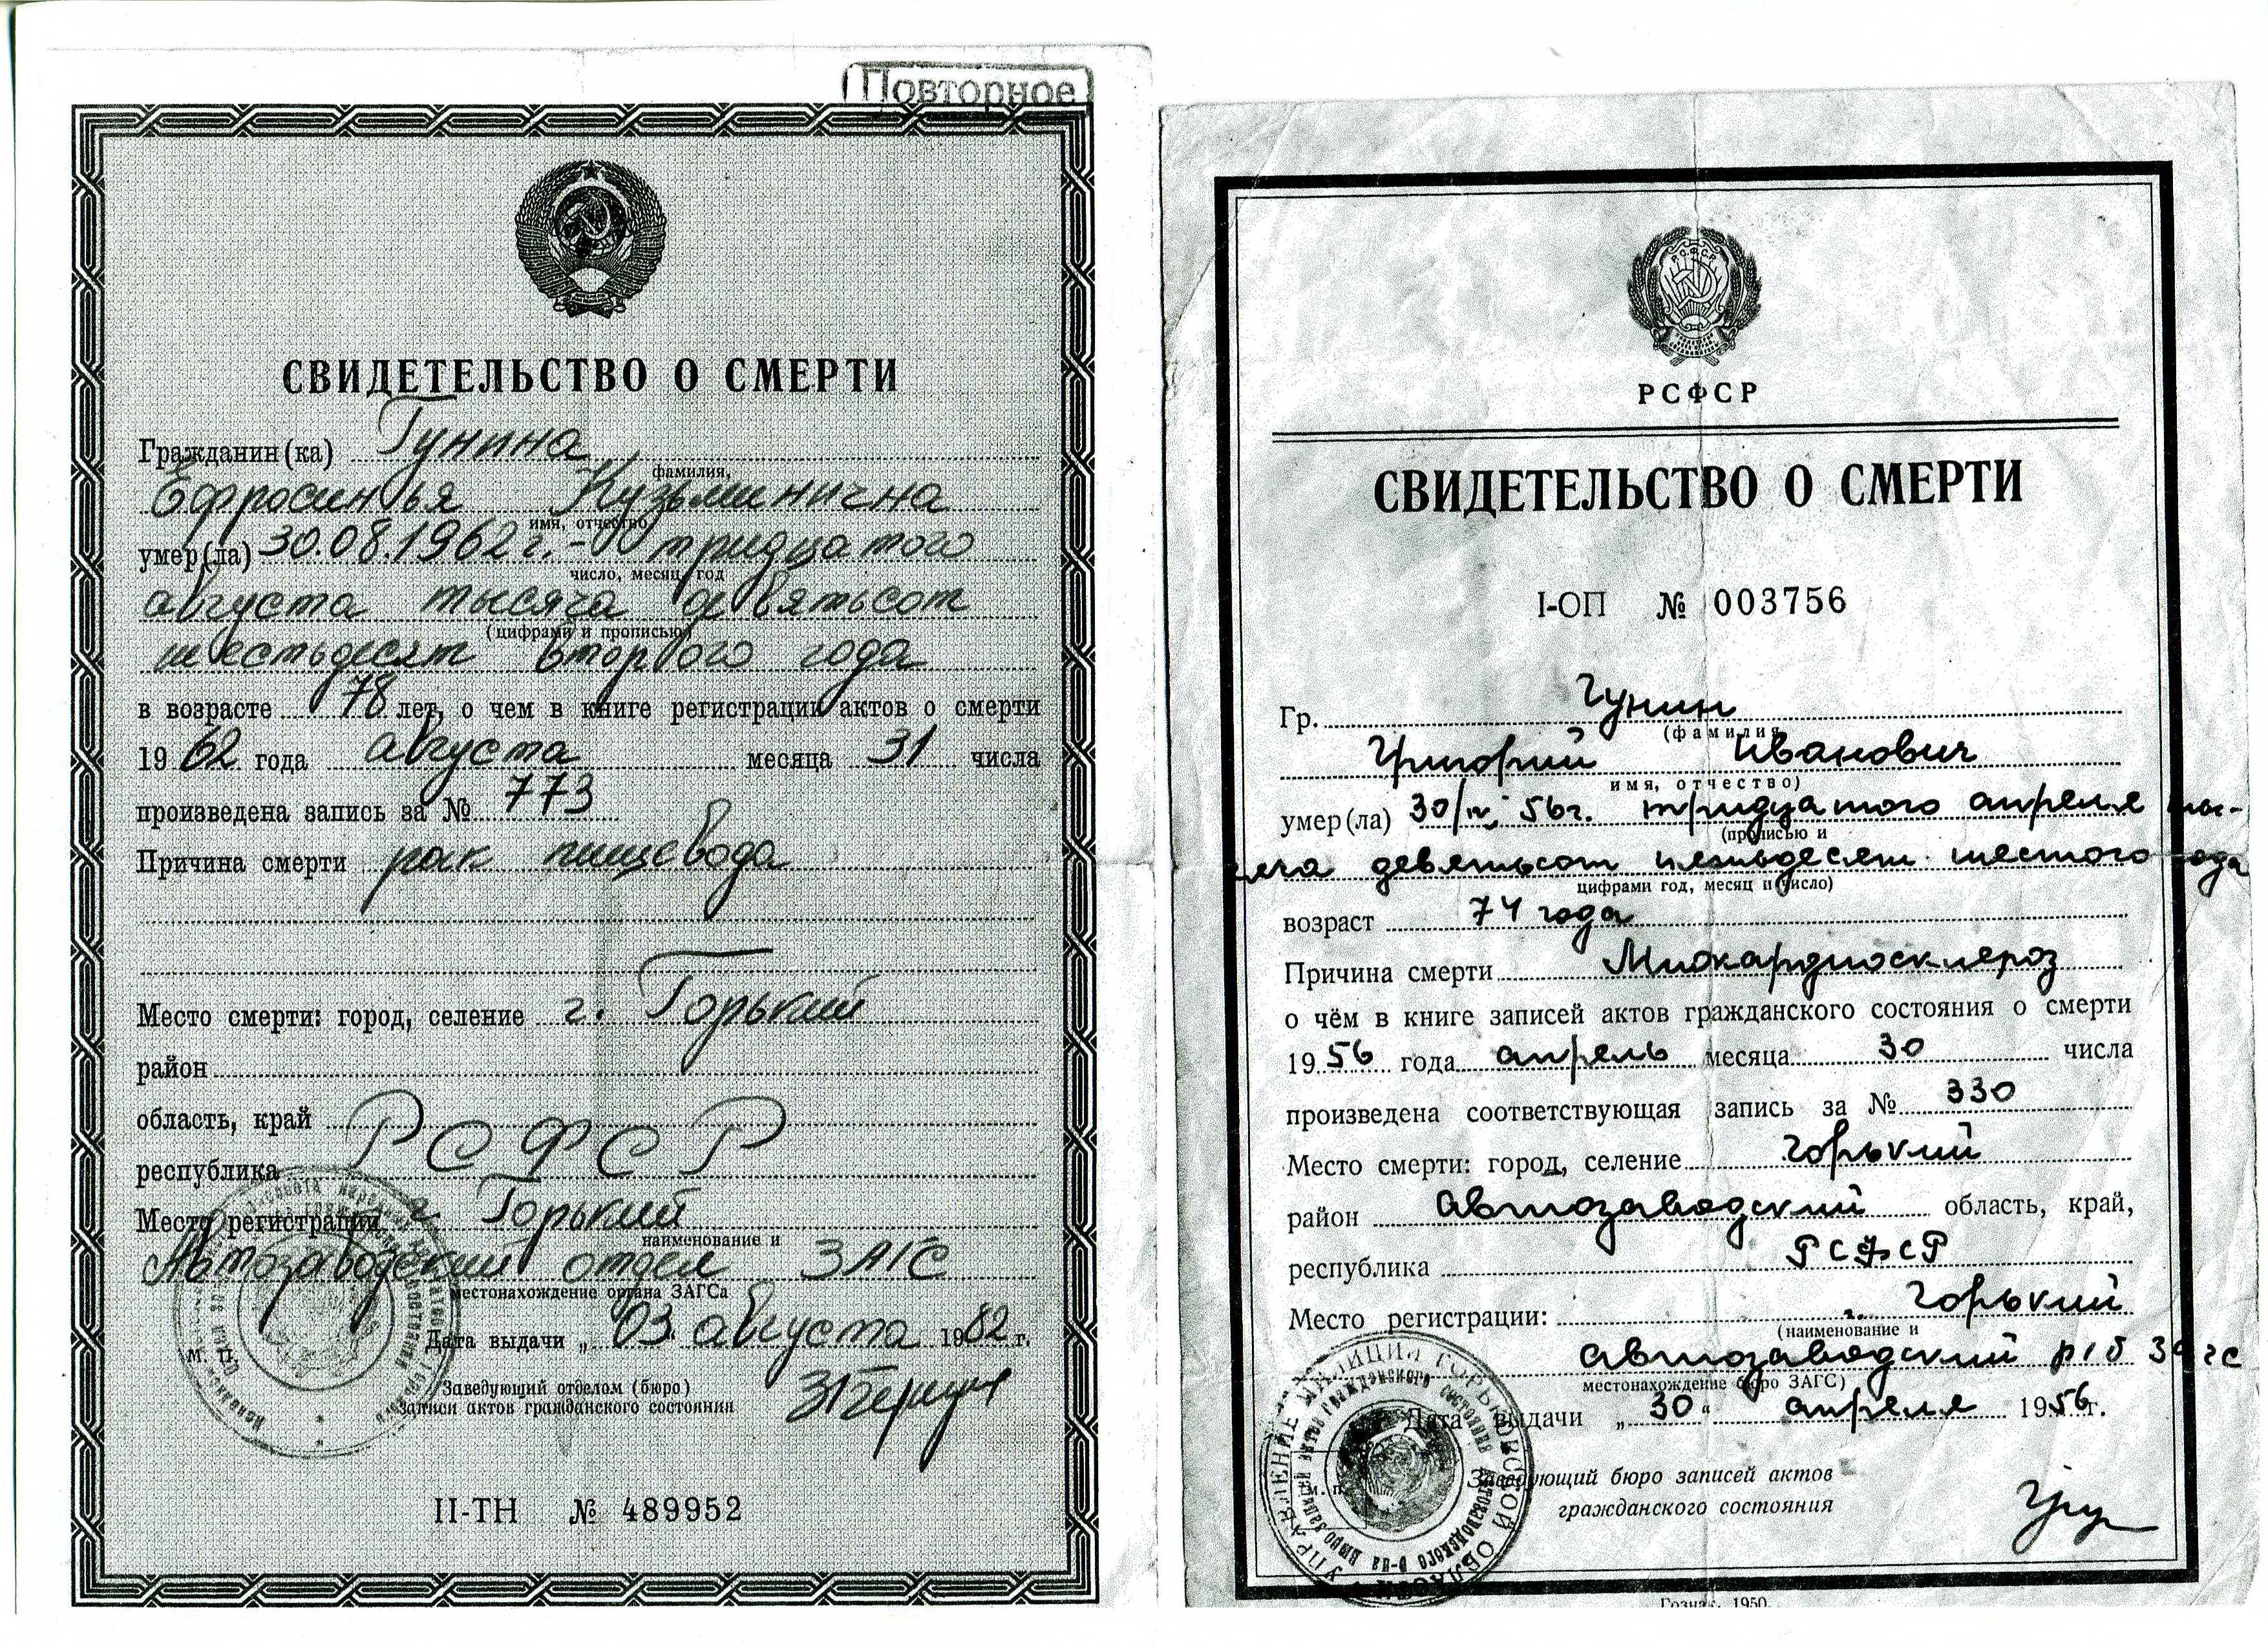 Повторное
СВИДЕТЕЛЬСТВО О СМЕРТИ
Гражданин(ка) Гунина
фамилия,
Ефросинья Кузьминична
имя, отчество
умер(ла) 30.08.1962 г. - тридцатого
число, месяц, год
августа тысяча девятьсот
(цифрами и прописью)
шестьдесят второго года
в возрасте 78 лет, о чем в книге регистрации актов о смерти
19 62 года августа месяца 31 числа
произведена запись за № 773
Причина смерти рак пищевода
Место смерти: город, селение г. Горький
район
область, край
республика РСФСР
Место регистрации г. Горький
наименование и
Автозаводский отдел ЗАГС
местонахождение органа ЗАГСа
Дата выдачи „ 03 августа 1982 г.
М. П.
Заведующий отделом (бюро)
записи актов гражданского состояния
II-ТН № 489952
РСФСР
СВИДЕТЕЛЬСТВО О СМЕРТИ
I-ОП № 003756
Гр. Гунин
(фамилия,
Григорий Иванович
имя, отчество)
умер(ла) 30/IV 56г. тридцатого апреля ты-
(прописью и
сяча девятьсот пятьдесят шестого года
цифрами год, месяц и число)
возраст 74 года
Причина смерти Миокардиосклероз
о чём в книге записей актов гражданского состояния о смерти
19 56 года апрель месяца 30 числа
произведена соответствующая запись за № 330
Место смерти: город, селение Горький
район Автозаводский область, край,
республика РСФСР
Место регистрации: г. Горький
(наименование и
Автозаводский р/б ЗАГС
местонахождение бюро ЗАГС)
Дата выдачи „ 30 “ апреля 1956 г.
м. п.
Заведующий бюро записей актов
гражданского состояния
УПРАВЛЕНИЕ МИЛИЦИИ ГОРЬКОВСКОЙ ОБЛАСТИ
Бюро записей актов гражданского состояния Автозаводского р-на
Гознак. 1950.